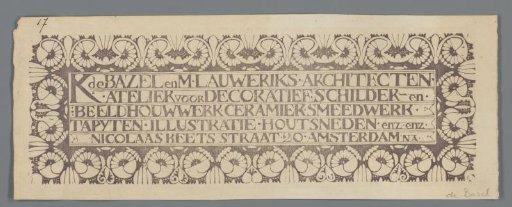 17
K de BAZEL en M·LAUWERIKS·ARCHITECTEN·
·ATELIER VOOR DECORATIEF·SCHILDER- en·
·BEELDHOUWWERK·CERAMIEK·SMEEDWERK·
TAPYTEN·ILLUSTRATIE·HOUTSNEDEN·enz·enz·
NICOLAAS BEETS STRAAT AMSTERDAM
de Bazel